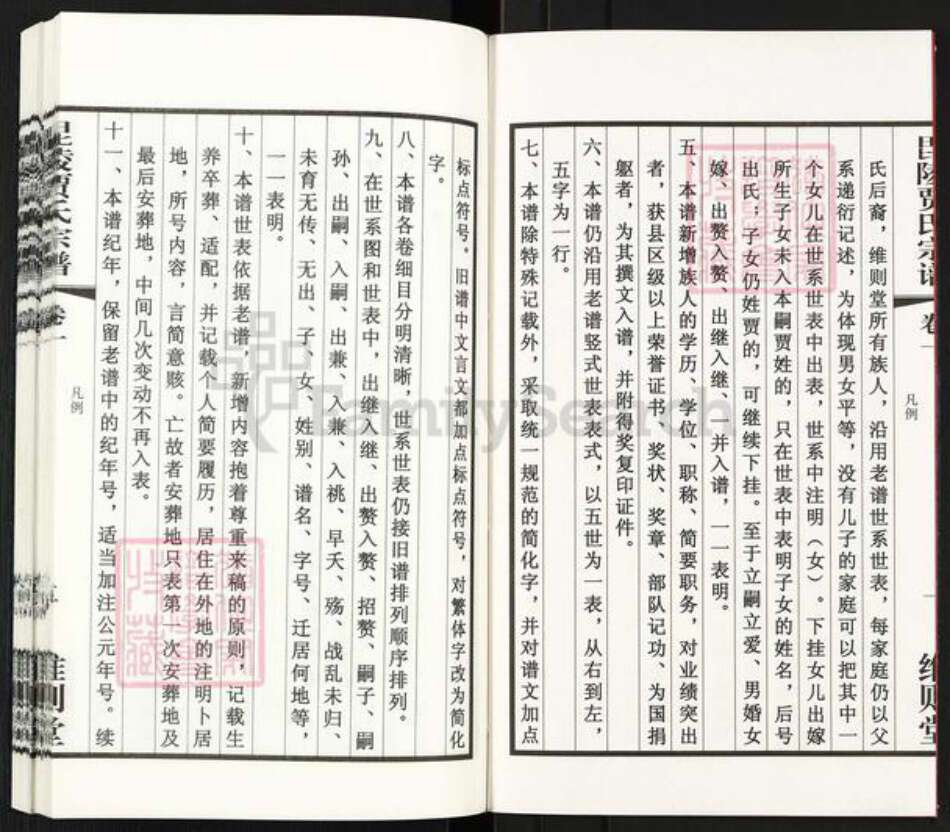 毘陵贾氏宗谱
卷一
凡例
维则堂
氏后裔，维则堂所有族人，沿用老谱世系世表，每家庭仍以父
系递衍记述，为体现男女平等，没有儿子的家庭可以把其中一
个女儿在世系世表中出表，世系中注明（女）。下挂女儿出嫁
所生子女未入本嗣贾姓的，只在世表中表明子女的姓名，后号
出氏；子女仍姓贾的，可继续下挂。至于立嗣立爱、男婚女
嫁、出赘入赘、出继入继、一并入谱，一一表明。
五、本谱新增族人的学历、学位、职称、简要职务，对业绩突出
者，获县区级以上荣誉证书、奖状、奖章、部队记功、为国捐
躯者，为其撰文入谱，并附得奖复印证件。
六、本谱仍沿用老谱竖式世表表式，以五世为一表，从右到左，
五字为一行。
七、本谱除特殊记载外，采取统一规范的简化字，并对谱文加点
标点符号。旧谱中文言文都加点标点符号，对繁体字改为简化
字。
八、本谱各卷细目分明清晰，世系世表仍接旧谱排列顺序排列。
九、在世系图和世表中，出继入继、出赘入赘、招赘、嗣子、嗣
孙、出嗣、入嗣、出兼、入兼、入桃、早夭、殇、战乱未归、
未育无传、无出、子、女、姓别、谱名、字号、迁居何地等，
一一表明。
十、本谱世表依据老谱，新增内容抱着尊重来稿的原则，记载生
养卒葬、适配，并记载个人简要履历，居住在外地的注明卜居
地，所号内容，言简意赅。亡故者安葬地只表第一次安葬地及
最后安葬地，中间几次变动不再入表。
十一、本谱纪年，保留老谱中的纪年号，适当加注公元年号。续
毘陵贾氏宗谱
卷一
凡例
维则堂
FamilySearch